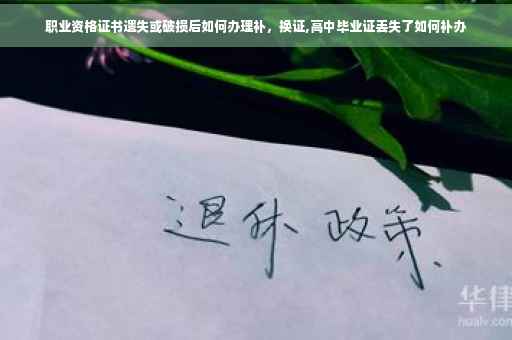 职业资格证书遗失或破损后如何办理补，换证,高中毕业证丢失了如何补办
退休 政策
华律
hualv.com